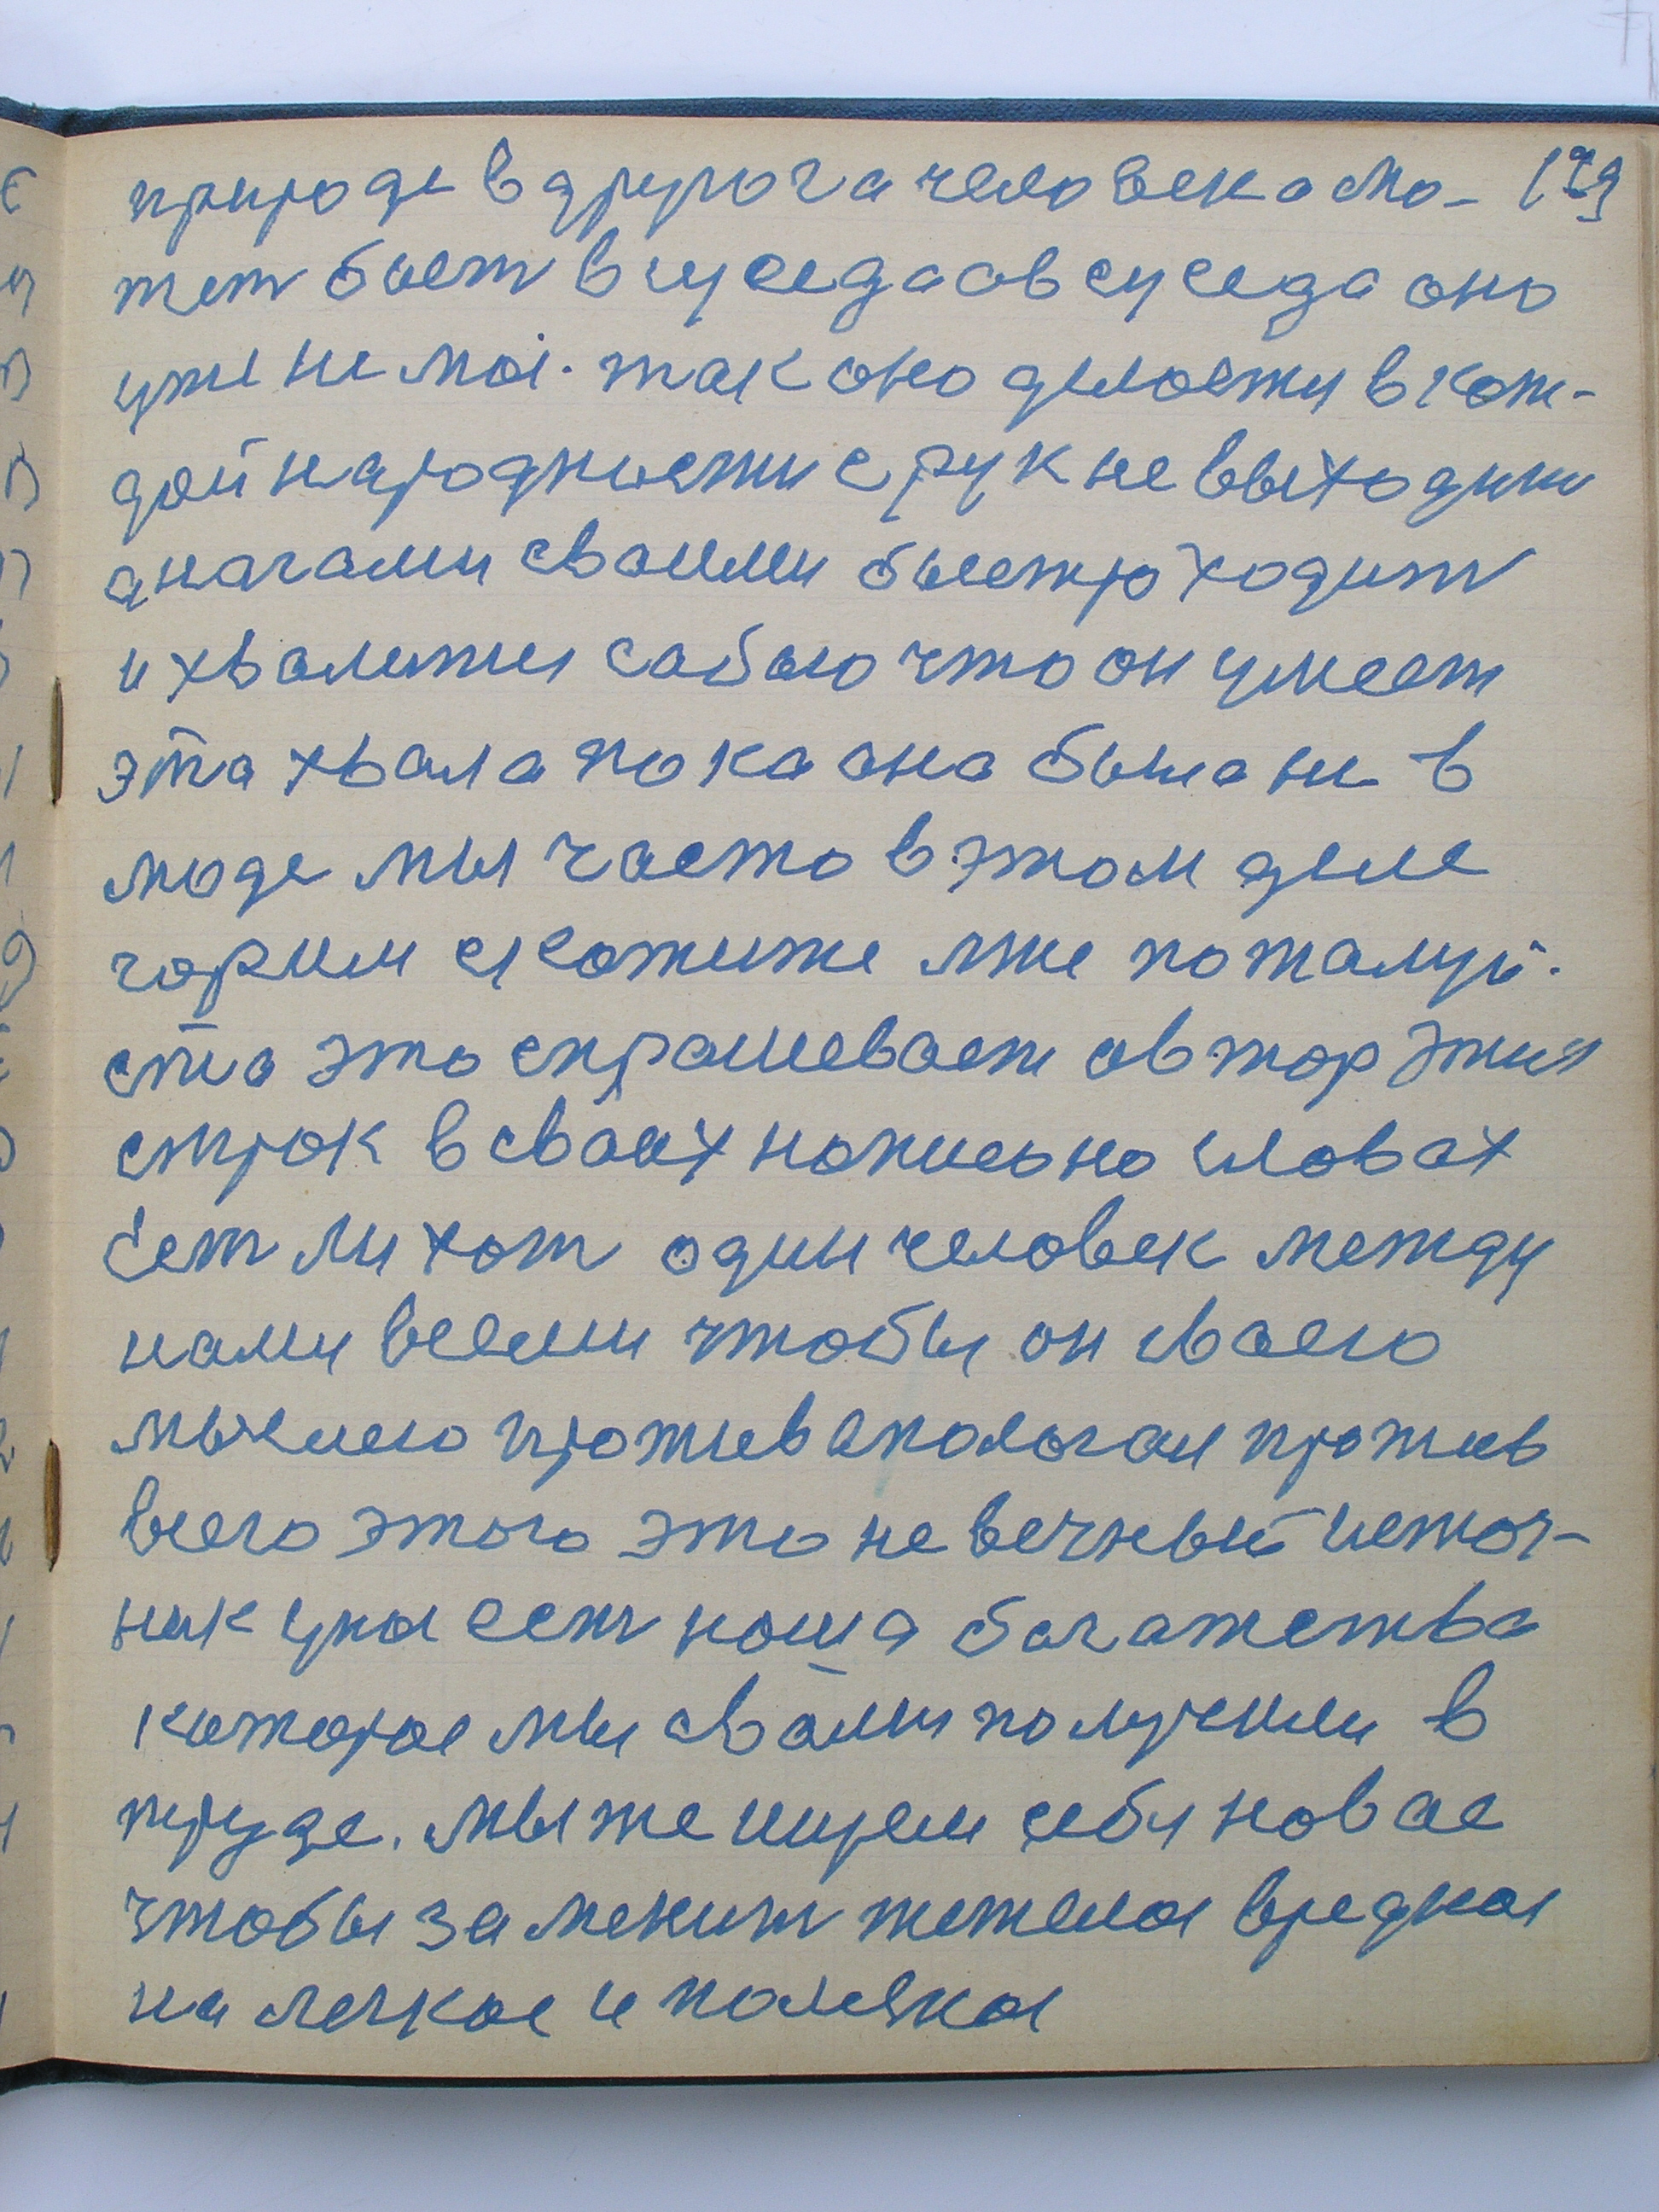 природе в другога человека мо-
жет быть в суседа а в суседа оно
уже не моё. так оно делаетси в каж-
дой народности с рук не выходит
а нагами сваими быстро ходит
и хвалитси сабою что он умеет
эта хвала пока она была не в
моде мы часто в этом деле
горим скажите мне пожалуй-
ста это спрашевает автор этих
строк в сваих написано словах
Ест ли хот один человек между
нами всеми чтобы он сваею
мыслею противаполагал против
всего этого это не вечный источ-
ник ума ест наша багатства
каторае мы с вами получили в
труде. мы же ищем себя новае
чтобы заменит тежолае вредная
на легкае и полезная